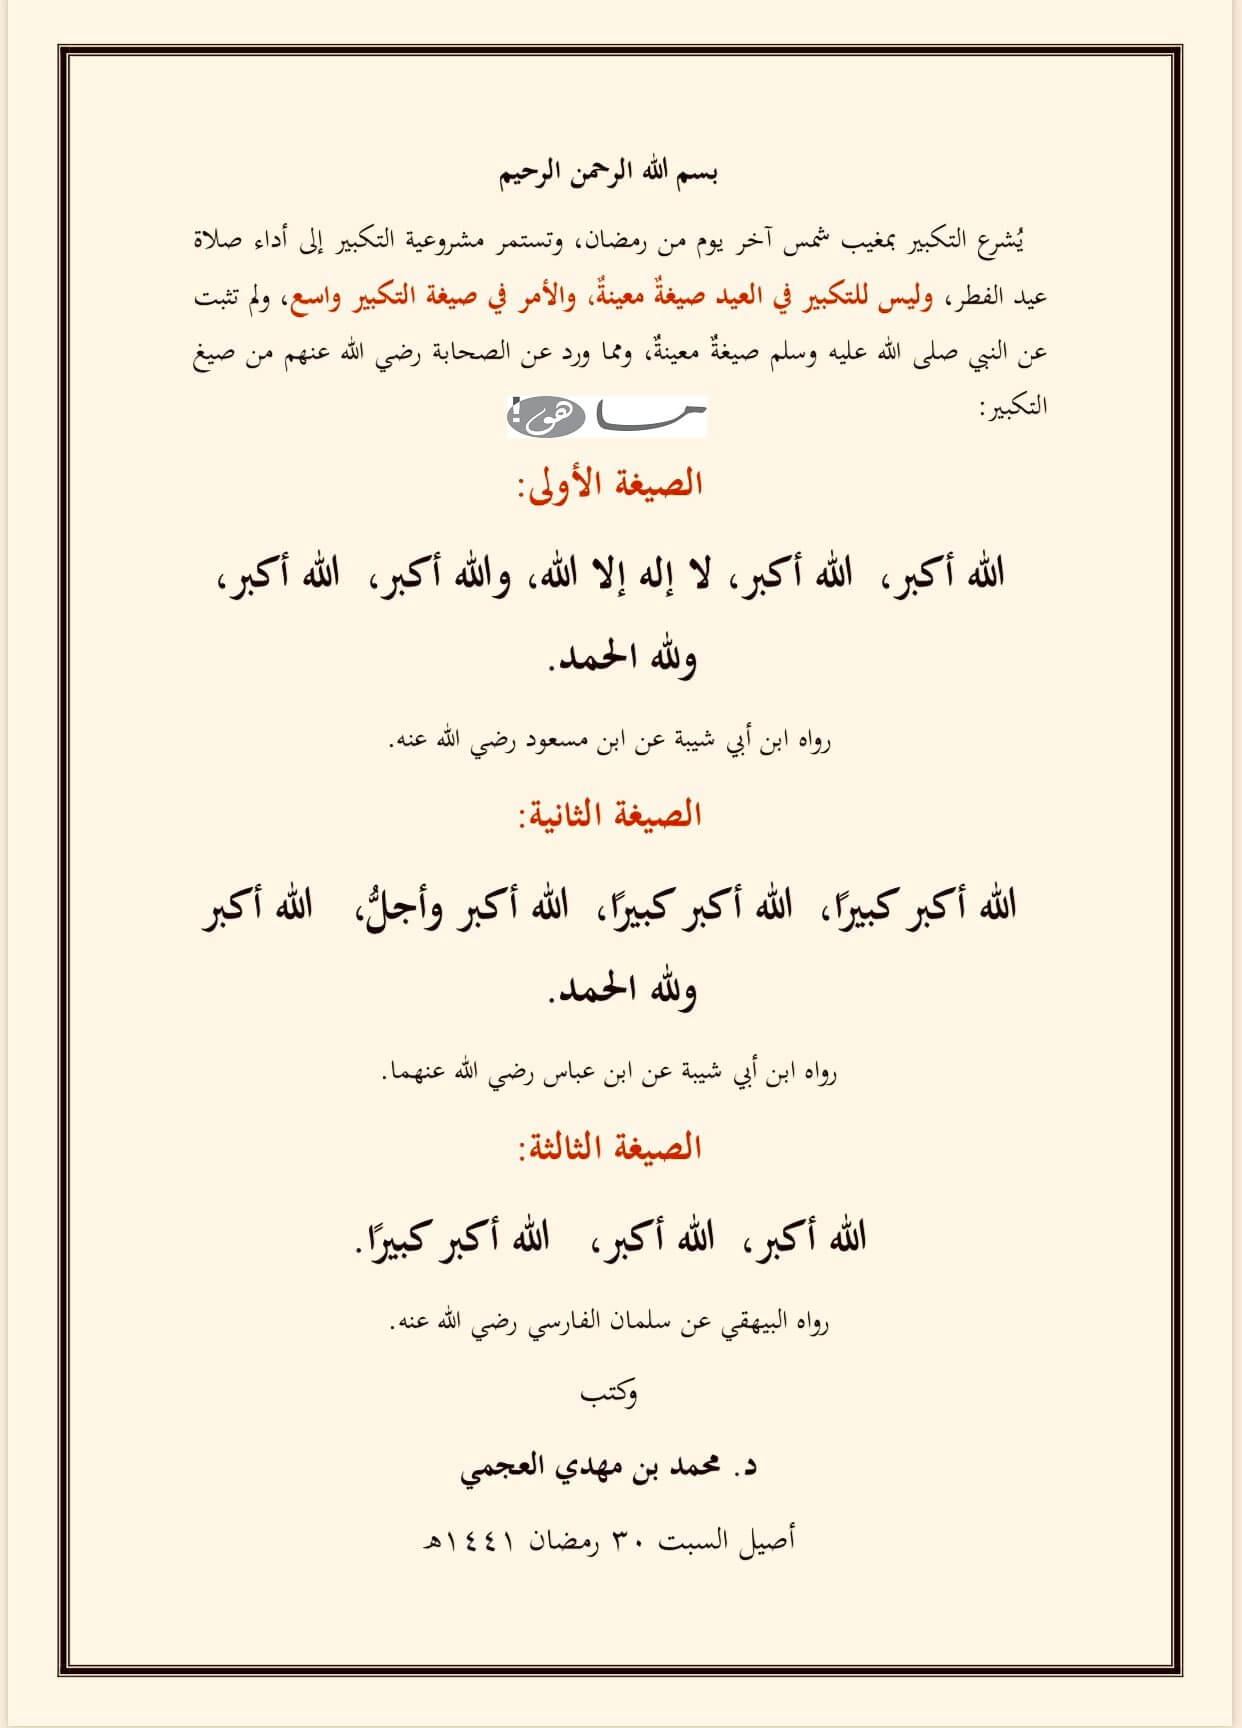 بسم الله الرحمن الرحيم
يُشرع التكبير بمغيب شمس آخر يوم من رمضان، وتستمر مشروعية التكبير إلى أداء صلاة
عيد الفطر، وليس للتكبير في العيد صيغةٌ معينةٌ، والأمر في صيغة التكبير واسع، ولم تثبت
عن النبي صلى الله عليه وسلم صيغةٌ معينةٌ، ومما ورد عن الصحابة رضي الله عنهم من صيغ
التكبير:
ما هو!
الصيغة الأولى:
الله أكبر، الله أكبر، لا إله إلا الله، والله أكبر، الله أكبر،
ولله الحمد.
رواه ابن أبي شيبة عن ابن مسعود رضي الله عنه.
الصيغة الثانية:
الله أكبر كبيرًا، الله أكبر كبيرًا، الله أكبر وأجلُّ، الله أكبر
ولله الحمد.
رواه ابن أبي شيبة عن ابن عباس رضي الله عنهما.
الصيغة الثالثة:
الله أكبر، الله أكبر، الله أكبر كبيرًا.
رواه البيهقي عن سلمان الفارسي رضي الله عنه.
وكتب
د. محمد بن مهدي العجمي
أصيل السبت ٣٠ رمضان ١٤٤١هـ